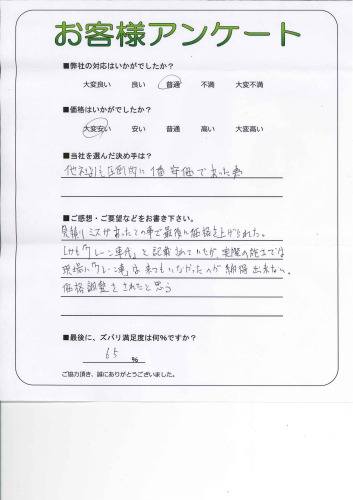 お客様アンケート
■弊社の対応はいかがでしたか?
大変良い 良い 普通 不満 大変不満
■価格はいかがでしたか?
大変安い 安い 普通 高い 大変高い
■当社を選んだ決め手は?
他社よりも圧倒的に一番安価であった事
■ご感想・ご要望などをお書き下さい。
見積りミスがあったとの事で最後に価格を上げられた。
しかも「クレーン車代」と記載されていたが、実際の施工では
現場に「クレーン車」は来てもいなかったのが納得出来ない。
価格調整をされたと思う
■最後に、ズバリ満足度は何%ですか?
65 %
ご協力頂き、誠にありがとうございました。